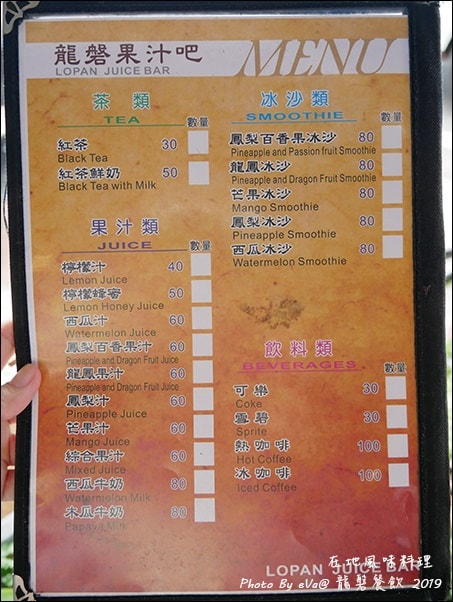 龍磐果汁吧
LOPAN JUICE BAR
MENU
茶類
TEA
數量
紅茶 30
Black Tea
紅茶鮮奶 50
Black Tea with Milk
果汁類
JUICE
數量
檸檬汁 40
Lemon Juice
檸檬蜂蜜 50
Lemon Honey Juice
西瓜汁 60
Watermelon Juice
鳳梨百香果汁 60
Pineapple and Passion fruit Juice
龍鳳果汁 60
Pineapple and Dragon Fruit Juice
鳳梨汁 60
Pineapple Juice
芒果汁 60
Mango Juice
綜合果汁 60
Mixed Juice
西瓜牛奶 80
Watermelon Milk
木瓜牛奶 80
Papaya Milk
冰沙類
SMOOTHIE
數量
鳳梨百香果冰沙 80
Pineapple and Passion fruit Smoothie
龍鳳冰沙 80
Pineapple and Dragon Fruit Smoothie
芒果冰沙 80
Mango Smoothie
鳳梨冰沙 80
Pineapple Smoothie
西瓜冰沙 80
Watermelon Smoothie
飲料類
BEVERAGES
數量
可樂 30
Coke
雪碧 30
Sprite
熱咖啡 100
Hot Coffee
冰咖啡 100
Iced Coffee
LOPAN JUICE BAR
在地風味料理
Photo By eVa@ 龍磐餐飲 2019